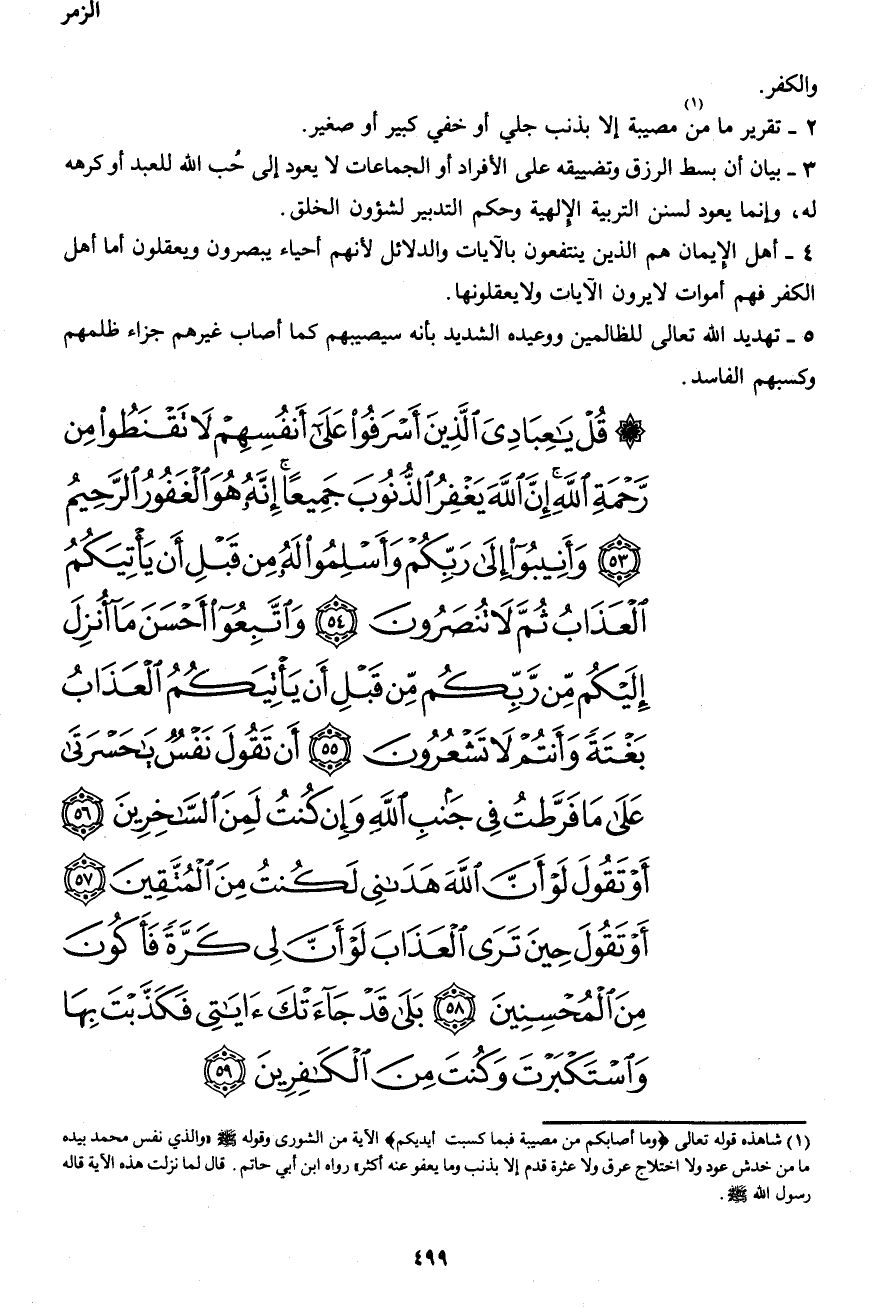 الزمر
والكفر.
٢ ـ تقرير ما من(١) مصيبة إلا بذنب جلي أو خفي كبير أو صغير.
٣ ـ بيان أن بسط الرزق وتضييقه على الأفراد أو الجماعات لا يعود إلى حُب الله للعبد أو كرهه
له، وإنما يعود لسنن التربية الإلهية وحكم التدبير لشؤون الخلق.
٤ ـ أهل الإيمان هم الذين ينتفعون بالآيات والدلائل لأنهم أحياء يبصرون ويعقلون أما أهل
الكفر فهم أموات لايرون الآيات ولايعقلونها.
٥ ـ تهديد الله تعالى للظالمين ووعيده الشديد بأنه سيصيبهم كما أصاب غيرهم جزاء ظلمهم
وكسبهم الفاسد.
۞ قُلْ يَٰعِبَادِىَ ٱلَّذِينَ أَسْرَفُوا۟ عَلَىٰٓ أَنفُسِهِمْ لَا تَقْنَطُوا۟ مِن
رَّحْمَةِ ٱللَّهِ ۚ إِنَّ ٱللَّهَ يَغْفِرُ ٱلذُّنُوبَ جَمِيعًا ۚ إِنَّهُۥ هُوَ ٱلْغَفُورُ ٱلرَّحِيمُ
﴿٥٣﴾ وَأَنِيبُوٓا۟ إِلَىٰ رَبِّكُمْ وَأَسْلِمُوا۟ لَهُۥ مِن قَبْلِ أَن يَأْتِيَكُمُ
ٱلْعَذَابُ ثُمَّ لَا تُنصَرُونَ ﴿٥٤﴾ وَٱتَّبِعُوٓا۟ أَحْسَنَ مَآ أُنزِلَ
إِلَيْكُم مِّن رَّبِّكُم مِّن قَبْلِ أَن يَأْتِيَكُمُ ٱلْعَذَابُ
بَغْتَةً وَأَنتُمْ لَا تَشْعُرُونَ ﴿٥٥﴾ أَن تَقُولَ نَفْسٌ يَٰحَسْرَتَىٰ
عَلَىٰ مَا فَرَّطتُ فِى جَنۢبِ ٱللَّهِ وَإِن كُنتُ لَمِنَ ٱلسَّٰخِرِينَ ﴿٥٦﴾
أَوْ تَقُولَ لَوْ أَنَّ ٱللَّهَ هَدَىٰنِى لَكُنتُ مِنَ ٱلْمُتَّقِينَ ﴿٥٧﴾
أَوْ تَقُولَ حِينَ تَرَى ٱلْعَذَابَ لَوْ أَنَّ لِى كَرَّةً فَأَكُونَ
مِنَ ٱلْمُحْسِنِينَ ﴿٥٨﴾ بَلَىٰ قَدْ جَآءَتْكَ ءَايَٰتِى فَكَذَّبْتَ بِهَا
وَٱسْتَكْبَرْتَ وَكُنتَ مِنَ ٱلْكَٰفِرِينَ ﴿٥٩﴾
(١) شاهده قوله تعالى ﴿وما أصابكم من مصيبة فبما كسبت أيديكم﴾ الآية من الشورى وقوله ﷺ «والذي نفس محمد بيده
ما من خدش عود ولا اختلاج عرق ولا عثرة قدم إلا بذنب وما يعفو عنه أكثر» رواه ابن أبي حاتم. قال لما نزلت هذه الآية قاله
رسول الله ﷺ.
٤٩٩